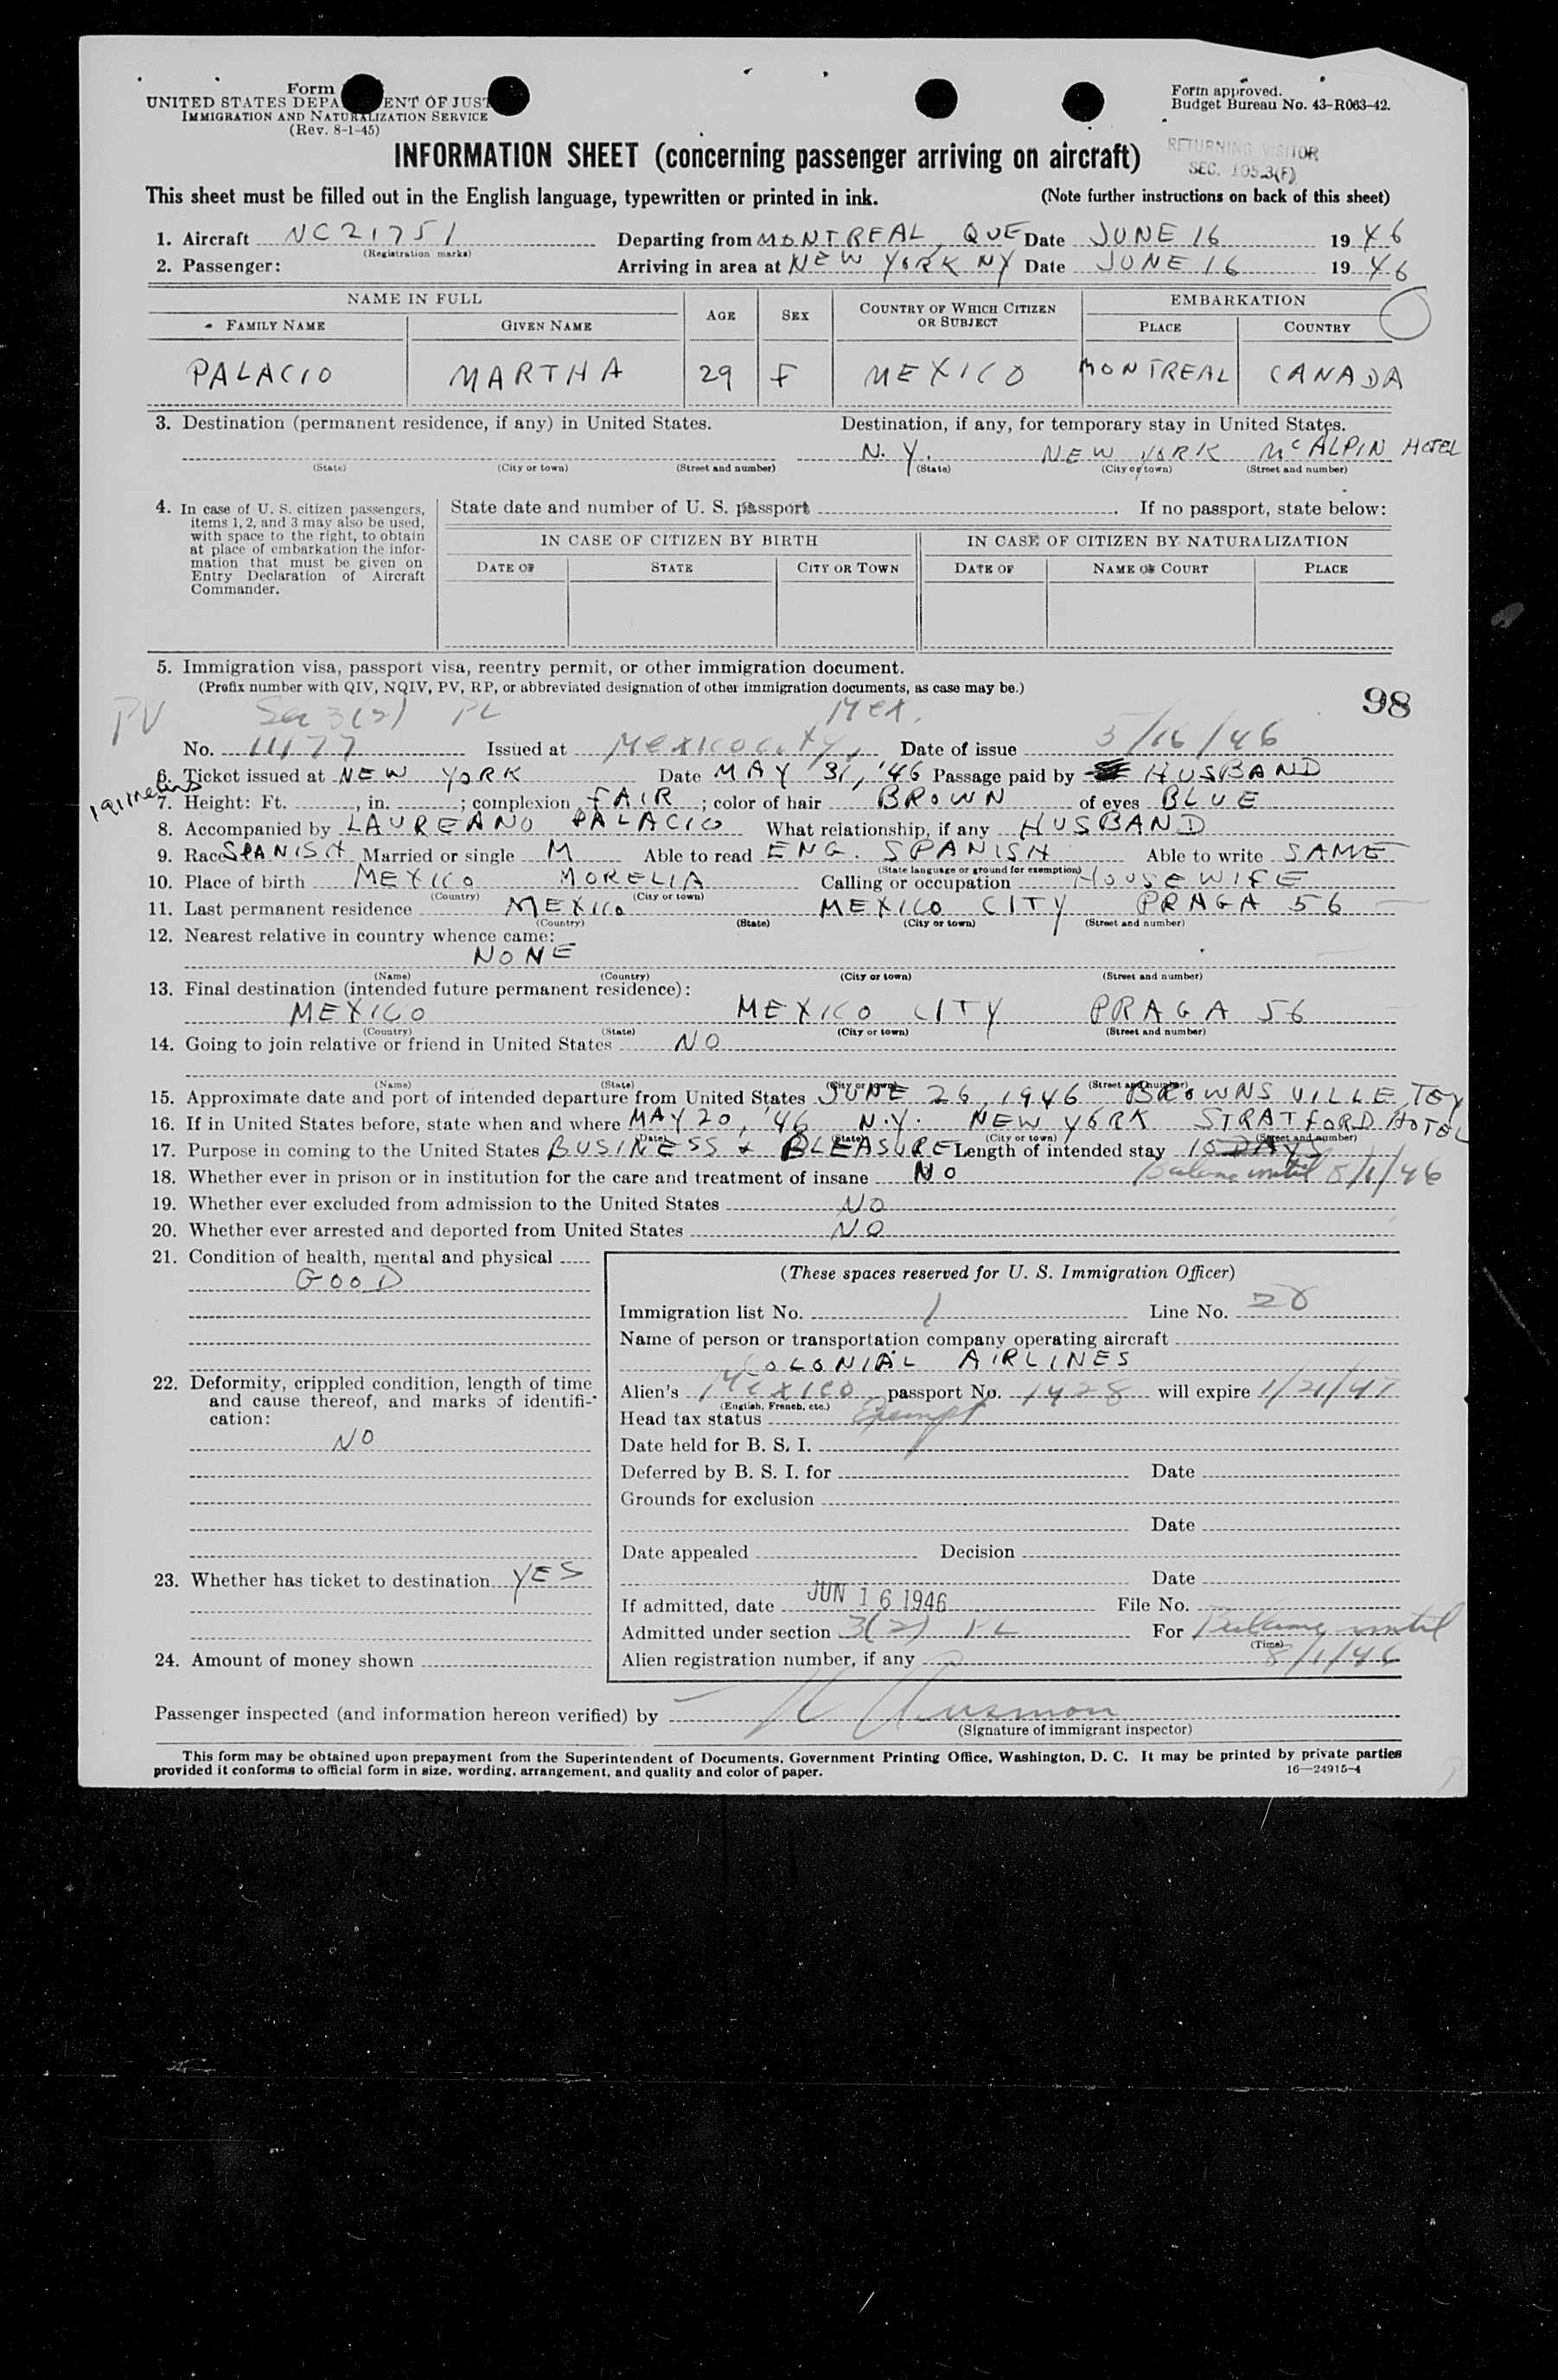 Form
UNITED STATES DEPA ENT OF JUST
IMMIGRATION AND NATURALIZATION SERVICE
(Rev. 8-1-45)
Form approved.
Budget Bureau No. 43-R063-42.
INFORMATION SHEET (concerning passenger arriving on aircraft)
RETURNING VISITOR
SEC. 105.3(F)
This sheet must be filled out in the English language, typewritten or printed in ink. (Note further instructions on back of this sheet)
1. Aircraft NC21751 Departing from MONTREAL, QUE Date JUNE 16 1946
(Registration marks)
2. Passenger: Arriving in area at NEW YORK NY Date JUNE 16 1946
NAME IN FULL AGE SEX COUNTRY OF WHICH CITIZEN OR SUBJECT EMBARKATION
FAMILY NAME GIVEN NAME PLACE COUNTRY
PALACIO MARTHA 29 F MEXICO MONTREAL CANADA
3. Destination (permanent residence, if any) in United States. Destination, if any, for temporary stay in United States.
N.Y. NEW YORK McALPIN HOTEL
(State) (City or town) (Street and number) (State) (City or town) (Street and number)
4. In case of U. S. citizen passengers, items 1, 2, and 3 may also be used, with space to the right, to obtain at place of embarkation the information that must be given on Entry Declaration of Aircraft Commander.
State date and number of U. S. passport If no passport, state below:
IN CASE OF CITIZEN BY BIRTH IN CASE OF CITIZEN BY NATURALIZATION
DATE OF STATE CITY OR TOWN DATE OF NAME OF COURT PLACE
5. Immigration visa, passport visa, reentry permit, or other immigration document.
(Prefix number with QIV, NQIV, PV, RP, or abbreviated designation of other immigration documents, as case may be.)
98
PV Sec 3(2) PL Mex.
No. 11177 Issued at Mexico City, Date of issue 5/16/46
6. Ticket issued at NEW YORK Date MAY 31, '46 Passage paid by HUSBAND
7. Height: Ft. , in. ; complexion FAIR ; color of hair BROWN of eyes BLUE
8. Accompanied by LAUREANO PALACIO What relationship, if any HUSBAND
9. Race SPANISH Married or single M Able to read ENG. SPANISH Able to write SAME
(State language or ground for exemption)
10. Place of birth MEXICO MORELIA Calling or occupation HOUSEWIFE
(Country) (City or town)
11. Last permanent residence MEXICO MEXICO CITY PRAGA 56
(Country) (State) (City or town) (Street and number)
12. Nearest relative in country whence came:
NONE
(Name) (Country) (City or town) (Street and number)
13. Final destination (intended future permanent residence):
MEXICO MEXICO CITY PRAGA 56
(Country) (State) (City or town) (Street and number)
14. Going to join relative or friend in United States NO
(Name) (State) (City or town) (Street and number)
15. Approximate date and port of intended departure from United States JUNE 26, 1946 BROWNSVILLE, TEX
16. If in United States before, state when and where MAY 20, '46 N.Y. NEW YORK STRATFORD HOTEL
(Date) (State) (City or town) (Street and number)
17. Purpose in coming to the United States BUSINESS & PLEASURE Length of intended stay 10 DAYS
18. Whether ever in prison or in institution for the care and treatment of insane NO Balance until 8/1/46
19. Whether ever excluded from admission to the United States NO
20. Whether ever arrested and deported from United States NO
21. Condition of health, mental and physical
GOOD
22. Deformity, crippled condition, length of time and cause thereof, and marks of identification:
NO
23. Whether has ticket to destination YES
24. Amount of money shown
(These spaces reserved for U. S. Immigration Officer)
Immigration list No. 1 Line No. 28
Name of person or transportation company operating aircraft
COLONIAL AIRLINES
Alien's Mexico passport No. 1428 will expire 1/21/47
(English, French, etc.)
Head tax status Exempt
Date held for B. S. I.
Deferred by B. S. I. for Date
Grounds for exclusion
Date
Date appealed Decision
Date
If admitted, date JUN 16 1946 File No.
Admitted under section 3(2) PL For Balance until
(Time)
Alien registration number, if any 8/1/46
Passenger inspected (and information hereon verified) by
(Signature of immigrant inspector)
This form may be obtained upon prepayment from the Superintendent of Documents, Government Printing Office, Washington, D. C. It may be printed by private parties
provided it conforms to official form in size, wording, arrangement, and quality and color of paper. 16—24915-4